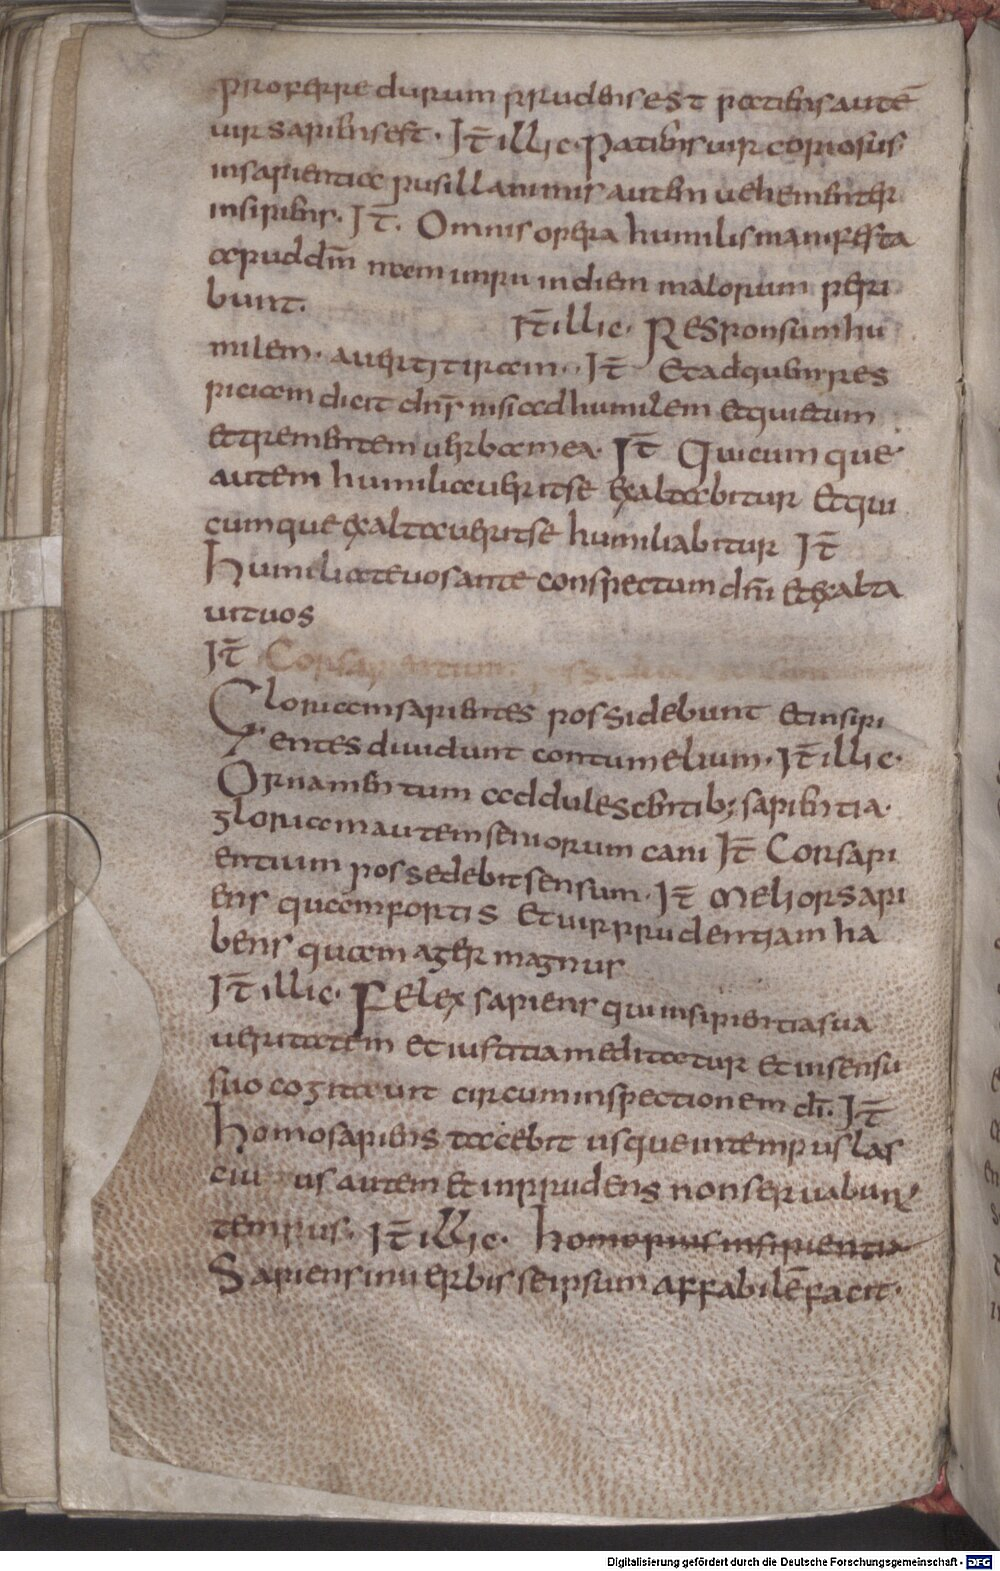 proferre durum prudens est patiens autē
uir sapiens est. It̄ illic. Patiens uir copiosus
in sapientia pusillanimis autem uehementer
insipiens. It̄. Omnis opera humilis manifesta
apud dm̄ nam impii in diem malorum peri
bunt.
It̄ illic. Responsum hu
milem. auertit iram. It̄ Et ad quem res
piciam dicit dn̄s nisi ad humilem et quietum
et trementem uerba mea. It̄ Quicumque
autem humiliauerit se exaltabitur et qui
cumque exaltauerit se humiliabitur It̄
Humiliate uos ante conspectum dn̄i et exalta
uit uos
It̄ Cor sapientium
Gloriam sapientes possidebunt et insipi
entes diuidunt contumelium. It̄ illic.
Ornamentum adduliscentib; sapientia.
gloriam autem seniorum cani It̄ Cor sapi
entium possedebit sensum. It̄ Melior sapi
ens quam fortis et uir prudentiam ha
bens quam ager magnus
It̄ illic. Felex sapiens qui insipientia sua
ueritatem et iustitia meditatur et in sensu
suo cogitauit circum inspectionem dī. It̄
Homo sapiens tacebit usque in tempus las
ciu us autem et inprudens non seruabunt
tempus. It̄ illic. homo pius insipientia
Sapiens in uerbis se ipsum affabilē facit.
Digitalisierung gefördert durch die Deutsche Forschungsgemeinschaft - DFG